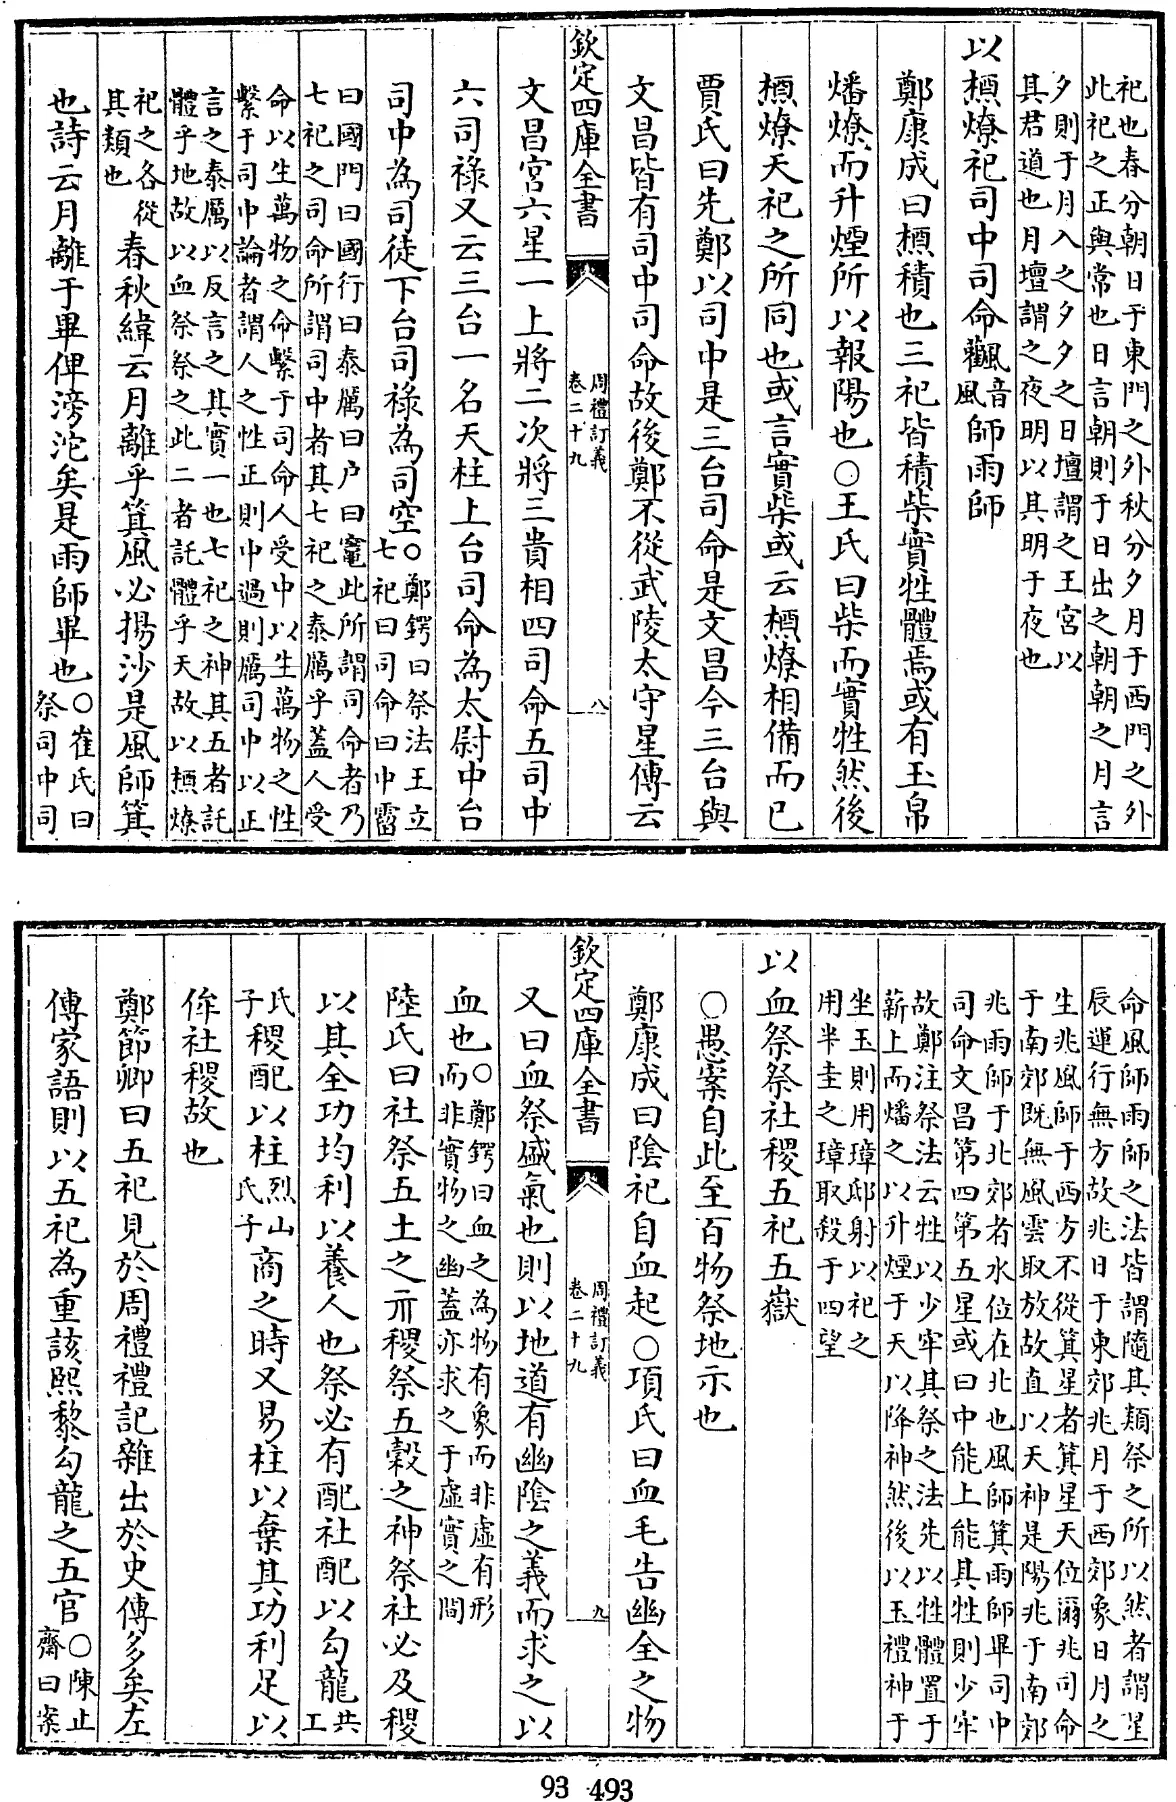 祀也春分朝日于東門之外秋分夕月于西門之外
此祀之正與常也日言朝則于日出之朝朝之月言
夕則于月入之夕夕之日壇謂之王宮以
其君道也月壇謂之夜明以其明于夜也
以槱燎祀司中司命飌音風師雨師
鄭康成曰槱積也三祀皆積柴實牲體焉或有玉帛
燔燎而升煙所以報陽也○王氏曰柴而實牲然後
槱燎天祀之所同也或言實柴或云槱燎相備而已
賈氏曰先鄭以司中是三台司命是文昌今三台與
文昌皆有司中司命故後鄭不從武陵太守星傳云
欽定四庫全書
周禮訂義
卷二十九
八
文昌宮六星一上將二次將三貴相四司命五司中
六司祿又云三台一名天柱上台司命為太尉中台
司中為司徒下台司祿為司空○鄭鍔曰祭法王立
七祀曰司命曰中霤
曰國門曰國行曰泰厲曰户曰竈此所謂司命者乃
七祀之司命所謂司中者其七祀之泰厲乎蓋人受
命以生萬物之命繫于司命人受中以生萬物之性
繫于司中論者謂人之性正則中過則厲司中以正
言之泰厲以反言之其實一也七祀之神其五者託
體乎地故以血祭祭之此二者託體乎天故以槱燎
祀之各從
其類也
春秋緯云月離乎箕風必揚沙是風師箕
也詩云月離于畢俾滂沱矣是雨師畢也○崔氏曰
祭司中司
命風師雨師之法皆謂隨其類祭之所以然者謂星
辰運行無方故兆日于東郊兆月于西郊象日月之
生兆風師于西方不從箕星者箕星天位爾兆司命
于南郊既無風雲取放故直以天神是陽兆于南郊
兆雨師于北郊者水位在北也風師箕雨師畢司中
司命文昌第四第五星或曰中能上能其牲則少牢
故鄭注祭法云牲以少牢其祭之法先以牲體置于
薪上而燔之以升煙于天以降神然後以玉禮神于
坐玉則用璋邸射以祀之
用半圭之璋取殺于四望
以血祭祭社稷五祀五嶽
○愚案自此至百物祭地示也
鄭康成曰陰祀自血起○項氏曰血毛告幽全之物
欽定四庫全書
周禮訂義
卷二十九
九
又曰血祭盛氣也則以地道有幽陰之義而求之以
血也○鄭鍔曰血之為物有象而非虛有形
而非實物之幽蓋亦求之于虛實之間
陸氏曰社祭五土之示稷祭五穀之神祭社必及稷
以其全功均利以養人也祭必有配社配以勾龍共
工
氏
子稷配以柱烈山
氏子商之時又易柱以棄其功利足以
侔社稷故也
鄭節卿曰五祀見於周禮禮記雜出於史傳多矣左
傳家語則以五祀為重該熙黎勾龍之五官○陳止
齋曰案
93 493